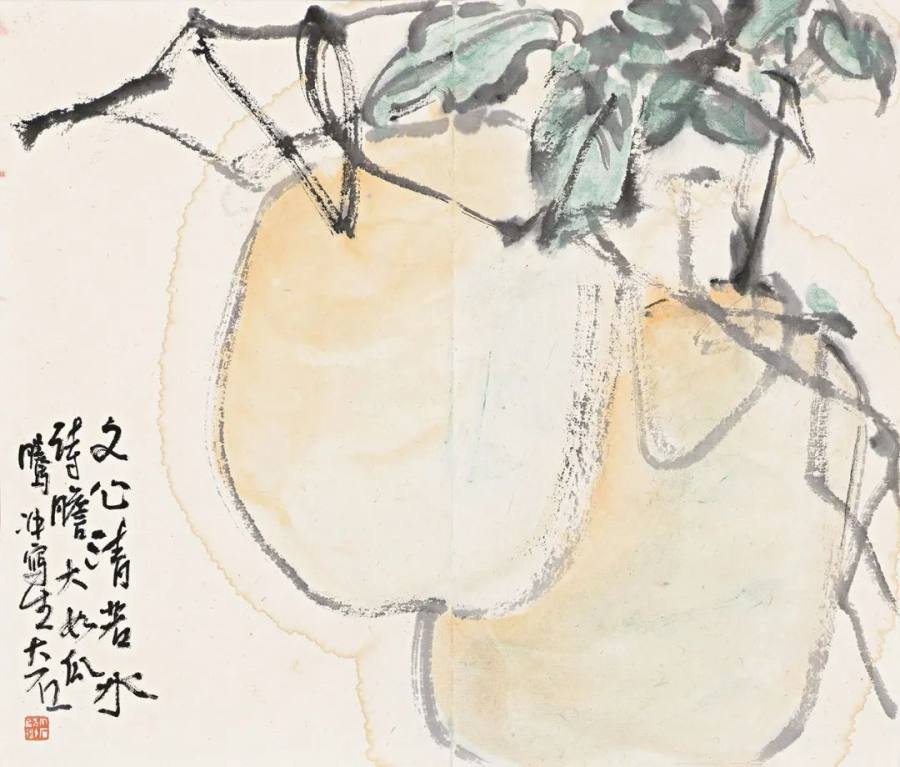 文心清若水
詩膽大如瓜
騰冲寫生大石